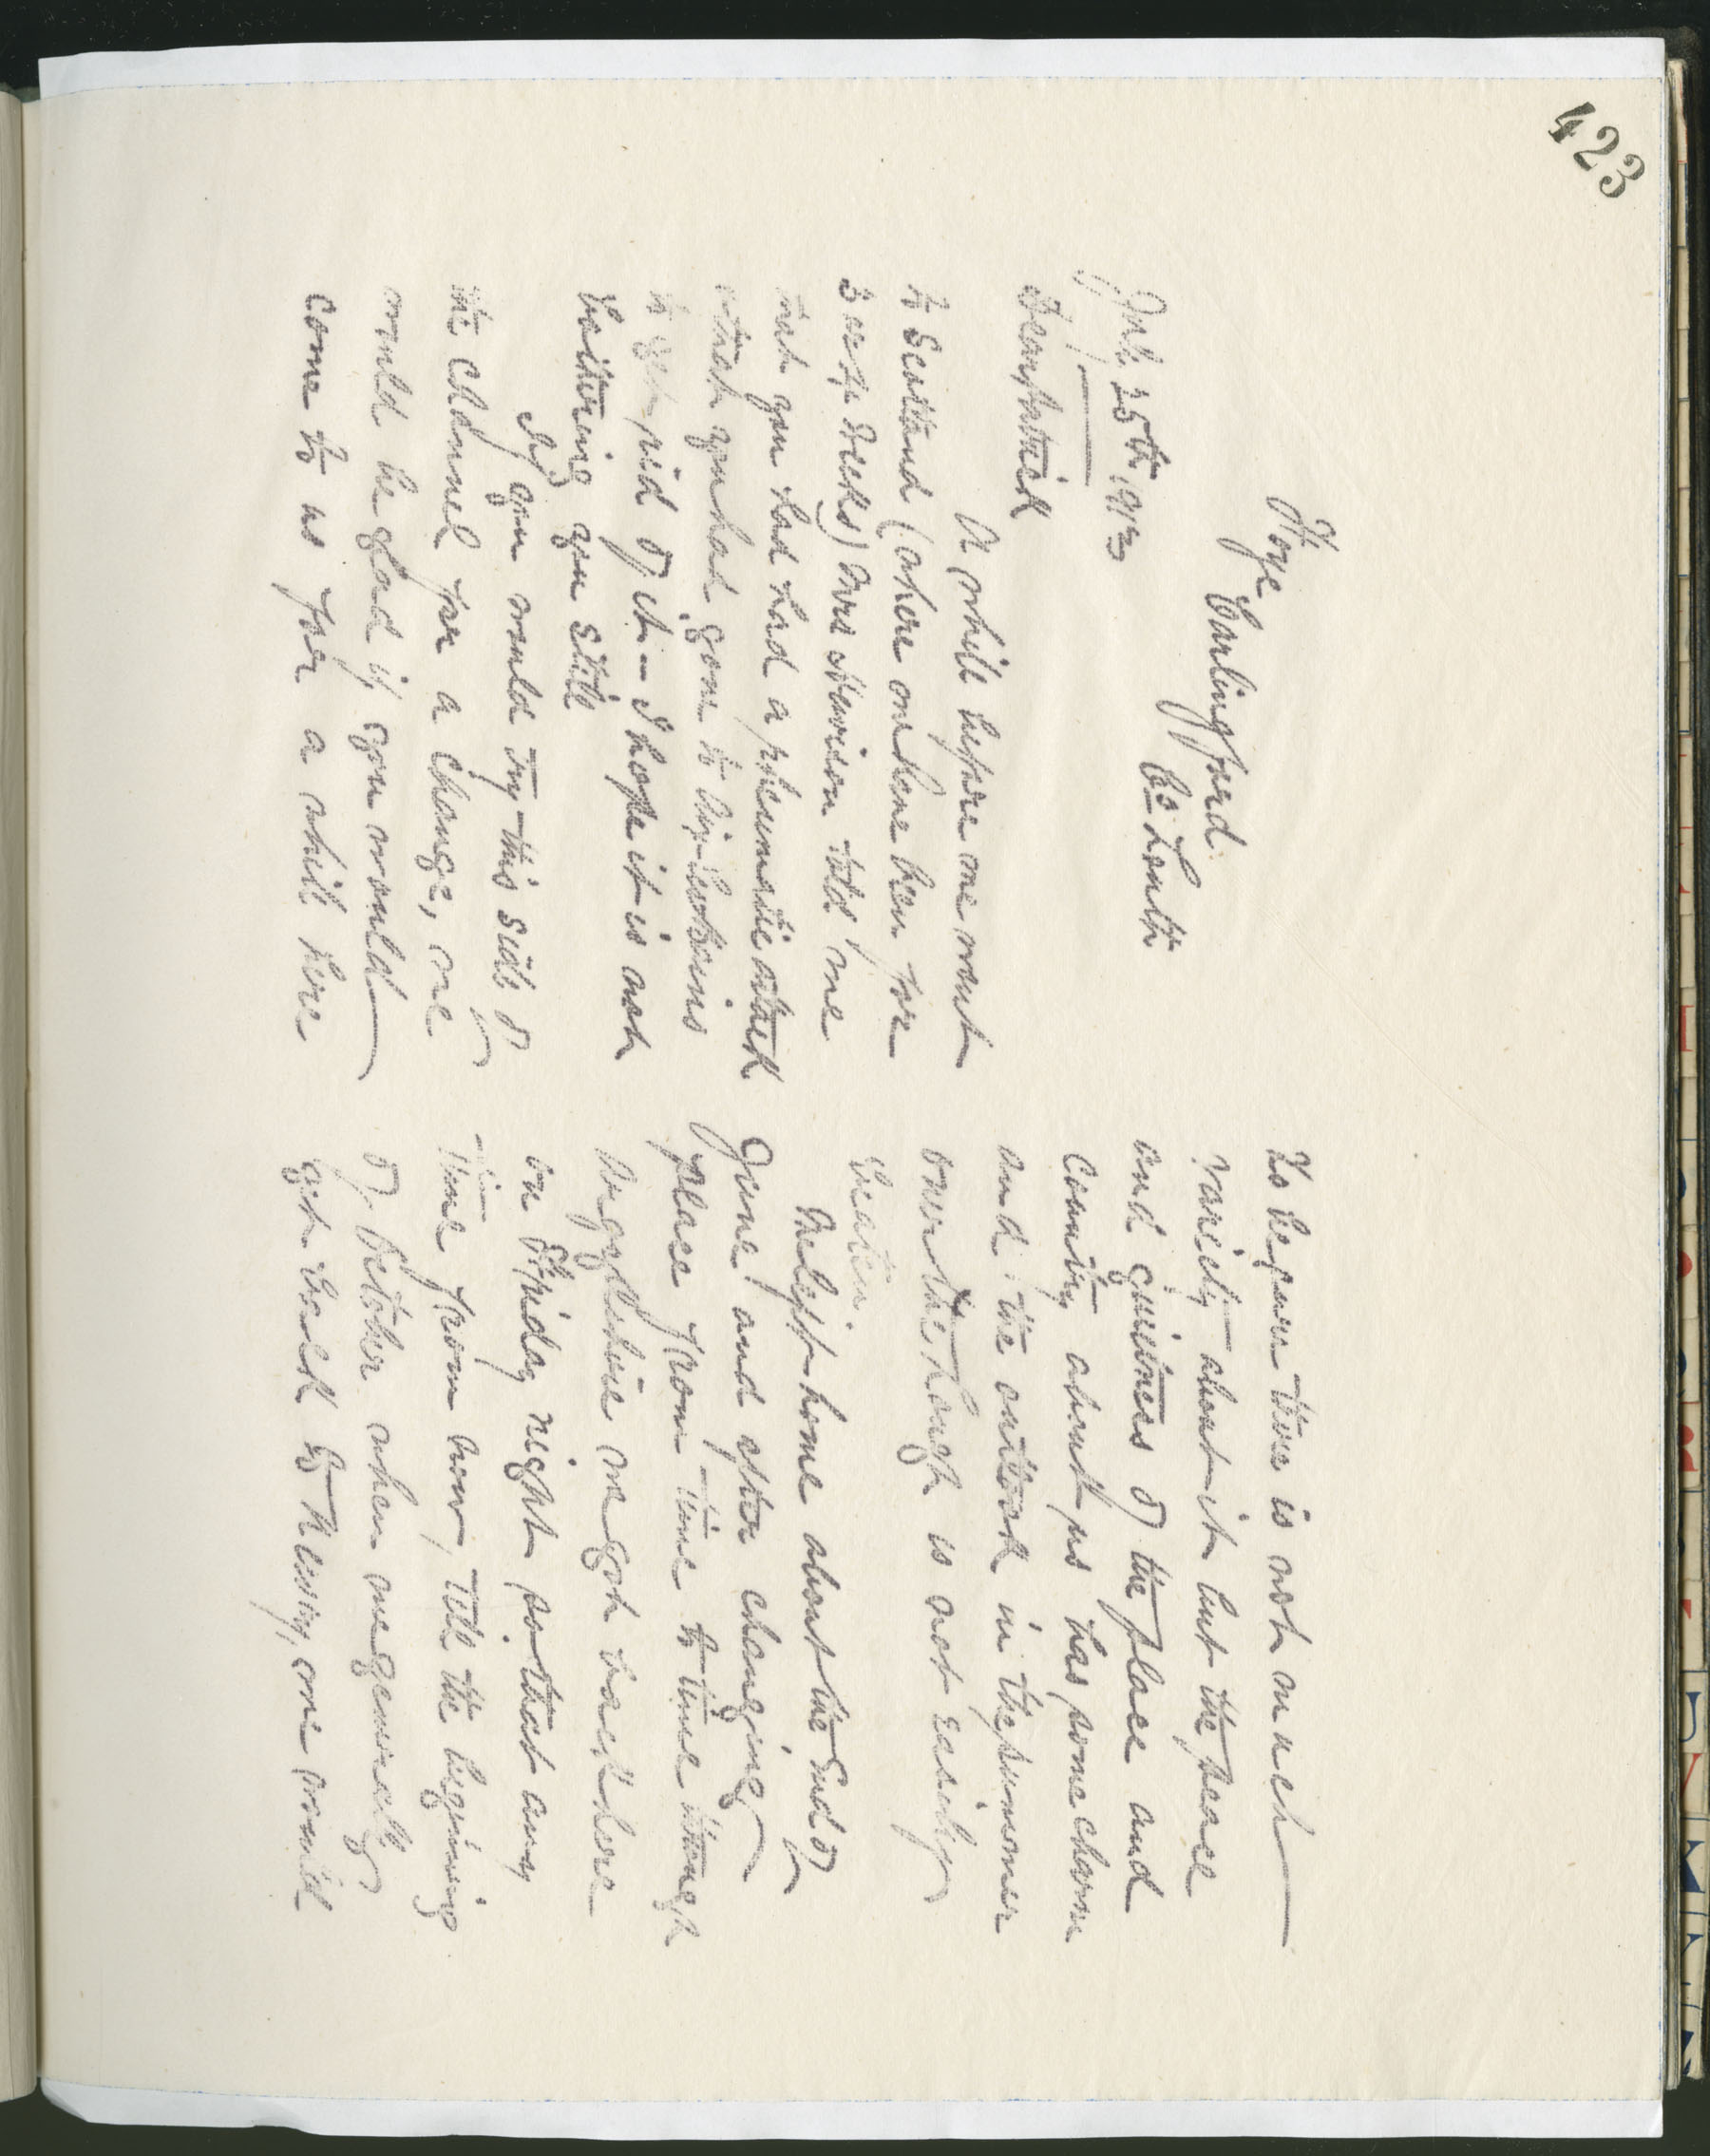 423
Foye
Carlingford
Co. Louth
July 25th 1913
Dear Patrick
A while before we went
to Scotland (where we have been for
3 or 4 weeks) Mrs Hewison told me
that you had had a rheumatic attack
& that you had gone to Aix-les-Bains
to get rid of it – I hope it is not
bothering you still
If you would try this side of
the channel for a change, we
would be glad if you would
come to us for a while here
To be sure there is not much
variety about it but the peace
and quietness of the place and
country about us has some charm
and the outlook in the summer
over the Lough is not easily
beaten
We left home about the end of
June and after changing
place from time to time through
Argyllshire we got back here
on Friday night so that any
time from now, till the beginning
of October when we generally
get back to, we would